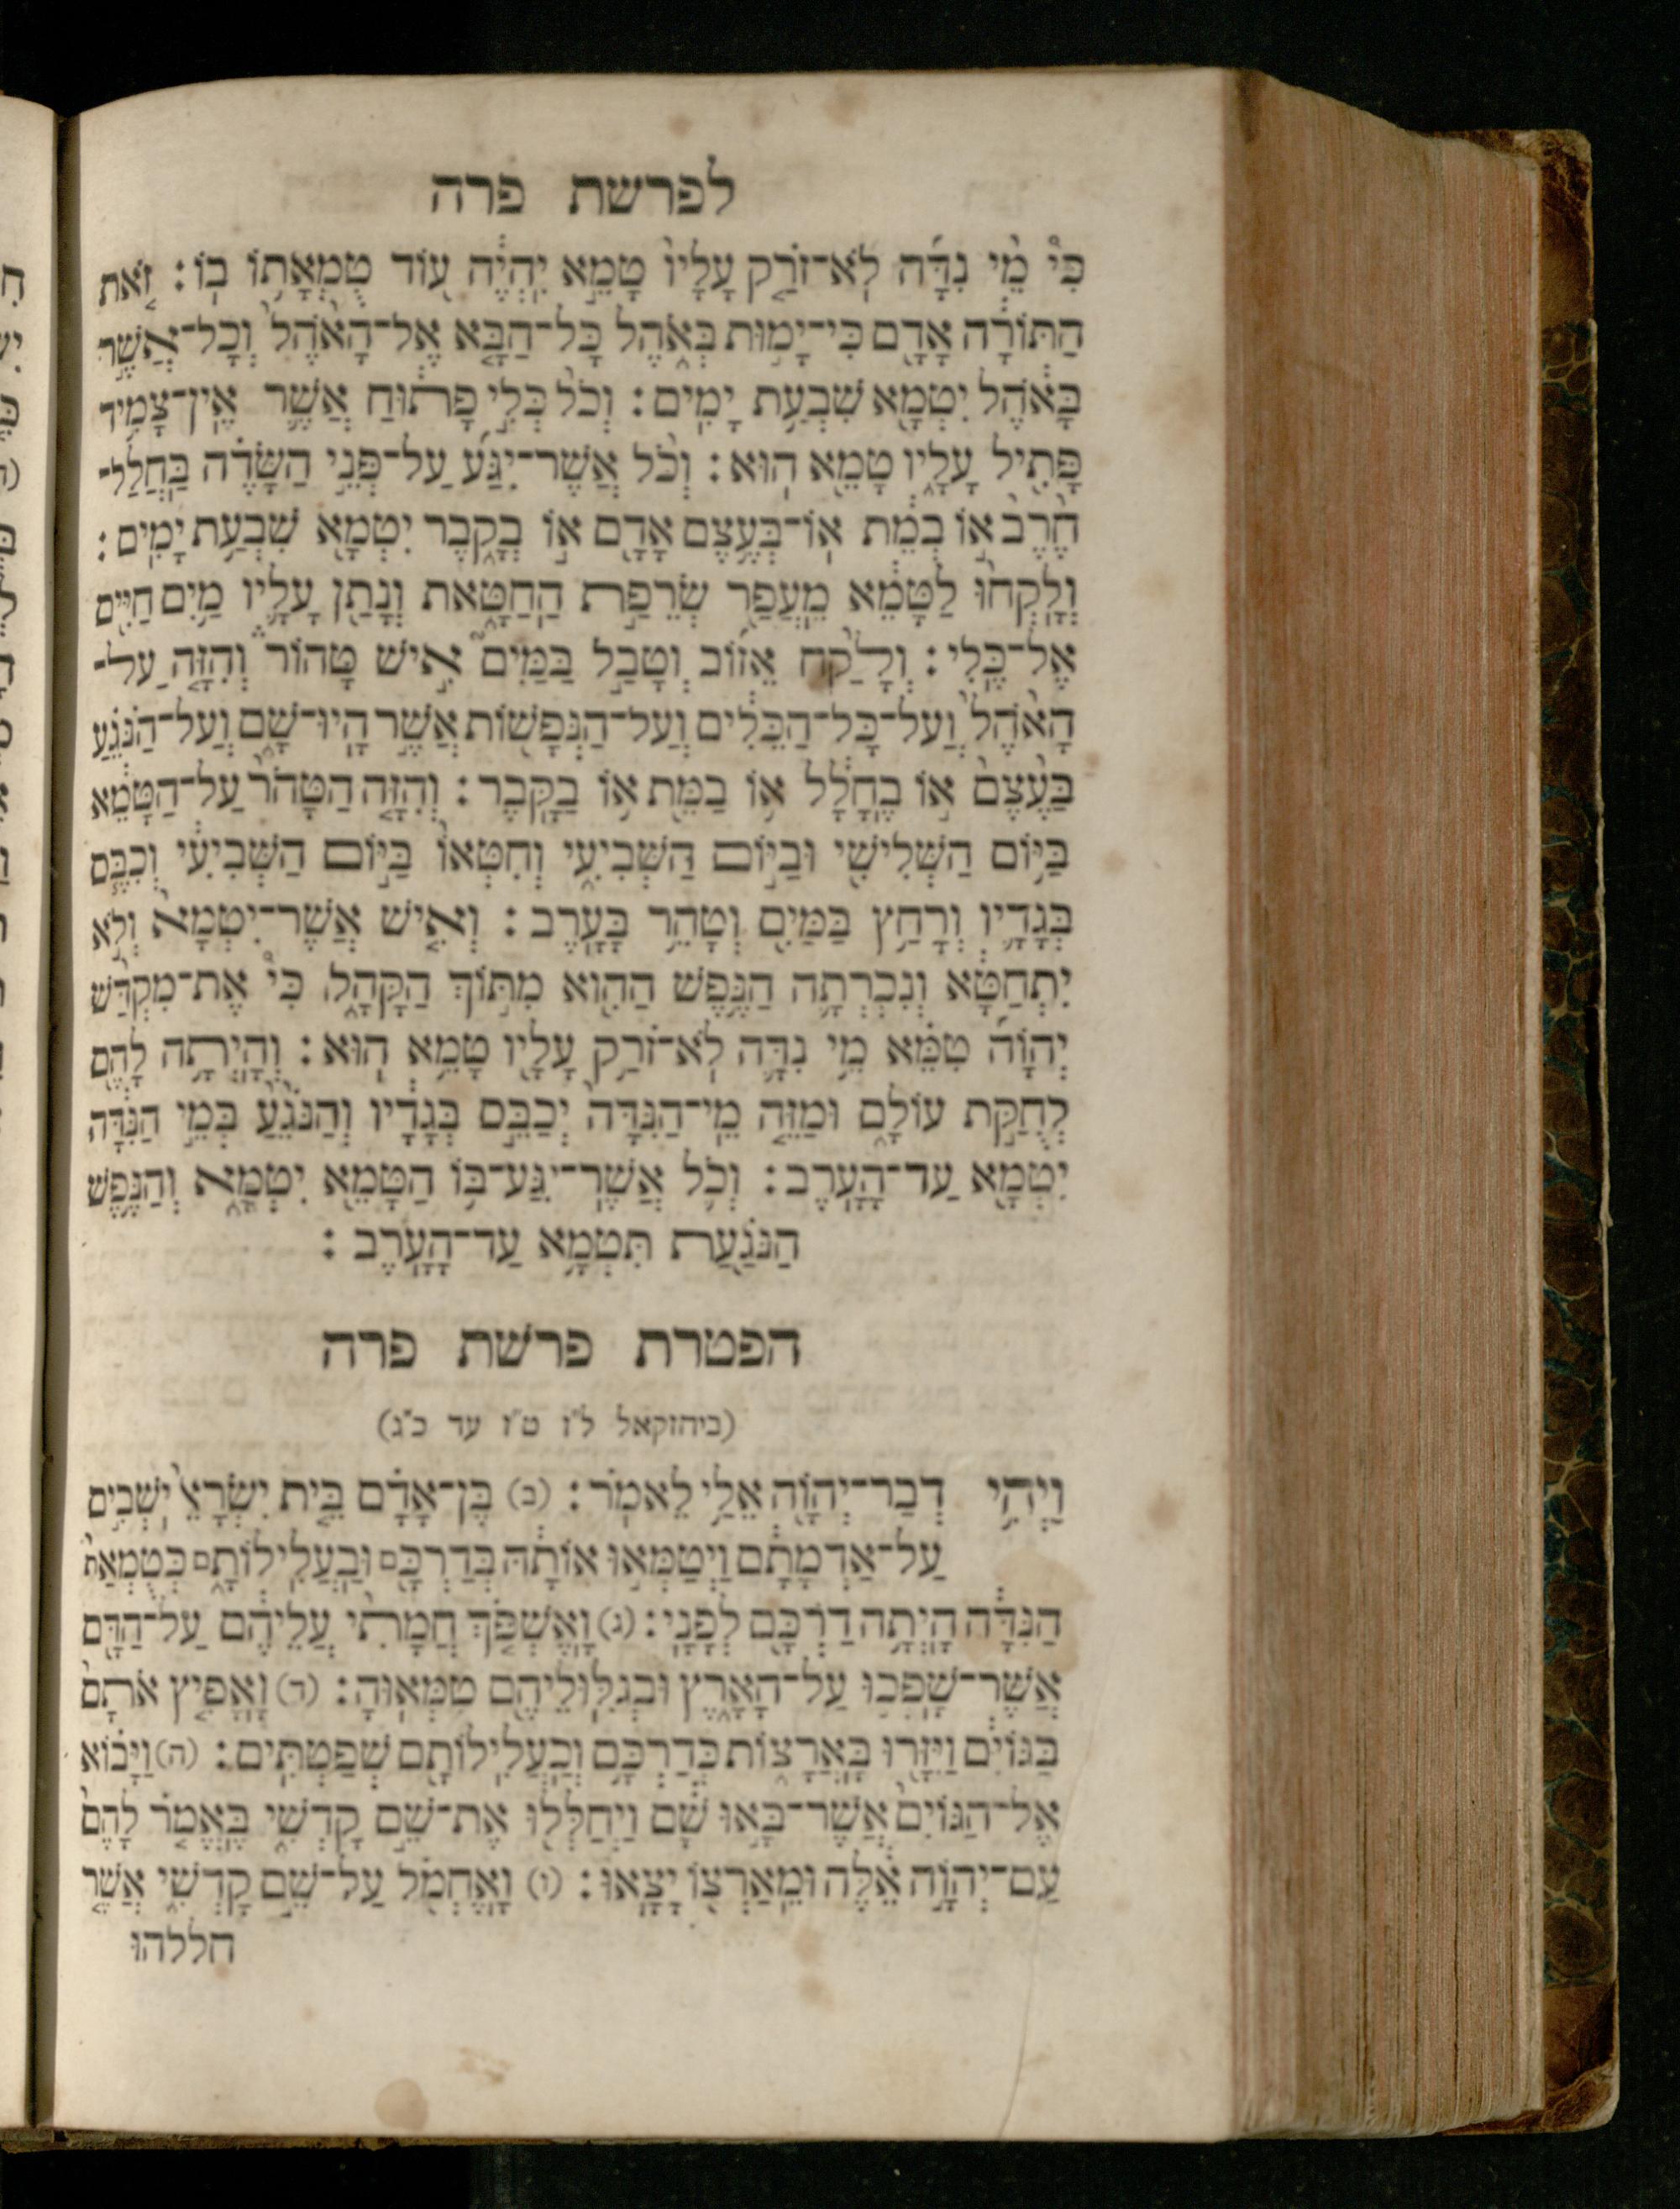 לפרשת פרה
כִּי֩ מֵ֨י נִדָּ֜ה לֹא־זֹרַ֤ק עָלָיו֙ טָמֵ֣א יִֽהְיֶ֔ה ע֖וֹד טֻמְאָת֥וֹ בֽוֹ׃ זֹ֚את
הַתּוֹרָ֔ה אָדָ֖ם כִּי־יָמ֣וּת בְּאֹ֑הֶל כָּל־הַבָּ֤א אֶל־הָאֹ֙הֶל֙ וְכָל־אֲשֶׁ֣ר
בָּאֹ֔הֶל יִטְמָ֖א שִׁבְעַ֥ת יָמִֽים׃ וְכֹל֙ כְּלִ֣י פָת֔וּחַ אֲשֶׁ֛ר אֵין־צָמִ֥יד
פָּתִ֖יל עָלָ֑יו טָמֵ֖א הֽוּא׃ וְכֹ֨ל אֲשֶׁר־יִגַּ֜ע עַל־פְּנֵ֣י הַשָּׂדֶ֗ה בַּֽחֲלַל־
חֶ֙רֶב֙ א֣וֹ בְמֵ֔ת אֽוֹ־בְעֶ֥צֶם אָדָ֖ם א֣וֹ בְקָ֑בֶר יִטְמָ֖א שִׁבְעַ֥ת יָמִֽים׃
וְלָֽקְחוּ֙ לַטָּמֵ֔א מֵֽעֲפַ֖ר שְׂרֵפַ֣ת הַֽחַטָּ֑את וְנָתַ֥ן עָלָ֛יו מַ֥יִם חַיִּ֖ים
אֶל־כֶּֽלִי׃ וְלָקַ֨ח אֵז֜וֹב וְטָבַ֣ל בַּמַּיִם֮ אִ֣ישׁ טָהוֹר֒ וְהִזָּ֤ה עַל־
הָאֹ֙הֶל֙ וְעַל־כָּל־הַכֵּלִ֔ים וְעַל־הַנְּפָשׁ֖וֹת אֲשֶׁ֣ר הָֽיוּ־שָׁ֑ם וְעַל־הַנֹּגֵ֗עַ
בַּעֶ֙צֶם֙ א֣וֹ בֶֽחָלָ֔ל א֥וֹ בַמֵּ֖ת א֥וֹ בַקָּֽבֶר׃ וְהִזָּ֤ה הַטָּהֹר֙ עַל־הַטָּמֵ֔א
בַּיּ֥וֹם הַשְּׁלִישִׁ֖י וּבַיּ֣וֹם הַשְּׁבִיעִ֑י וְחִטְּאוֹ֙ בַּיּ֣וֹם הַשְּׁבִיעִ֔י וְכִבֶּ֧ס
בְּגָדָ֛יו וְרָחַ֥ץ בַּמַּ֖יִם וְטָהֵ֥ר בָּעָֽרֶב׃ וְאִ֤ישׁ אֲשֶׁר־יִטְמָא֙ וְלֹ֣א
יִתְחַטָּ֔א וְנִכְרְתָ֛ה הַנֶּ֥פֶשׁ הַהִ֖וא מִתּ֣וֹךְ הַקָּהָ֑ל כִּי֩ אֶת־מִקְדַּ֨שׁ
יְהוָ֜ה טִמֵּ֗א מֵ֥י נִדָּ֛ה לֹֽא־זֹרַ֥ק עָלָ֖יו טָמֵ֥א הֽוּא׃ וְהָֽיְתָ֥ה לָהֶ֖ם
לְחֻקַּ֣ת עוֹלָ֑ם וּמַזֵּ֤ה מֵֽי־הַנִּדָּה֙ יְכַבֵּ֣ס בְּגָדָ֔יו וְהַנֹּגֵ֙עַ֙ בְּמֵ֣י הַנִּדָּ֔ה
יִטְמָ֖א עַד־הָעָֽרֶב׃ וְכֹ֛ל אֲשֶׁר־יִגַּע־בּ֥וֹ הַטָּמֵ֖א יִטְמָ֑א וְהַנֶּ֥פֶשׁ
הַנֹּגַ֖עַת תִּטְמָ֥א עַד־הָעָֽרֶב׃
הפטרת פרשת פרה
(ביחזקאל ל״ו ט״ז עד כ״ג)
וַיְהִ֥י דְבַר־יְהוָ֖ה אֵלַ֥י לֵאמֹֽר׃ (ב) בֶּן־אָדָ֗ם בֵּ֤ית יִשְׂרָאֵ֙ יֹֽשְׁבִ֣ים
עַל־אַדְמָתָ֔ם וַיְטַמְּא֣וּ אוֹתָ֔הּ בְּדַרְכָּ֖ם וּבַֽעֲלִֽילוֹתָ֑ם כְּטֻמְאַת֙
הַנִּדָּ֔ה הָֽיְתָ֥ה דַרְכָּ֖ם לְפָנָֽי׃ (ג) וָֽאֶשְׁפֹּ֤ךְ חֲמָתִי֙ עֲלֵיהֶ֔ם עַל־הַדָּ֖ם
אֲשֶׁר־שָֽׁפְכ֣וּ עַל־הָאָ֑רֶץ וּבְגִלּֽוּלֵיהֶ֖ם טִמְּאֽוּהָ׃ (ד) וָֽאָפִ֤יץ אֹתָם֙
בַּגּוֹיִ֔ם וַיִּזָּר֖וּ בָּֽאֲרָצ֑וֹת כְּדַרְכָּ֥ם וְכַֽעֲלִֽילוֹתָ֖ם שְׁפַטְתִּֽים׃ (ה) וַיָּב֗וֹא
אֶל־הַגּוֹיִם֙ אֲשֶׁר־בָּ֣אוּ שָׁ֔ם וַֽיְחַלְּל֖וּ אֶת־שֵׁ֣ם קָדְשִׁ֑י בֶּֽאֱמֹ֤ר לָהֶם֙
עַם־יְהוָ֣ה אֵ֔לֶּה וּמֵֽאַרְצ֖וֹ יָצָֽאוּ׃ (ו) וָֽאֶחְמֹ֖ל עַל־שֵׁ֣ם קָדְשִׁ֑י אֲשֶׁ֤ר
חללהו